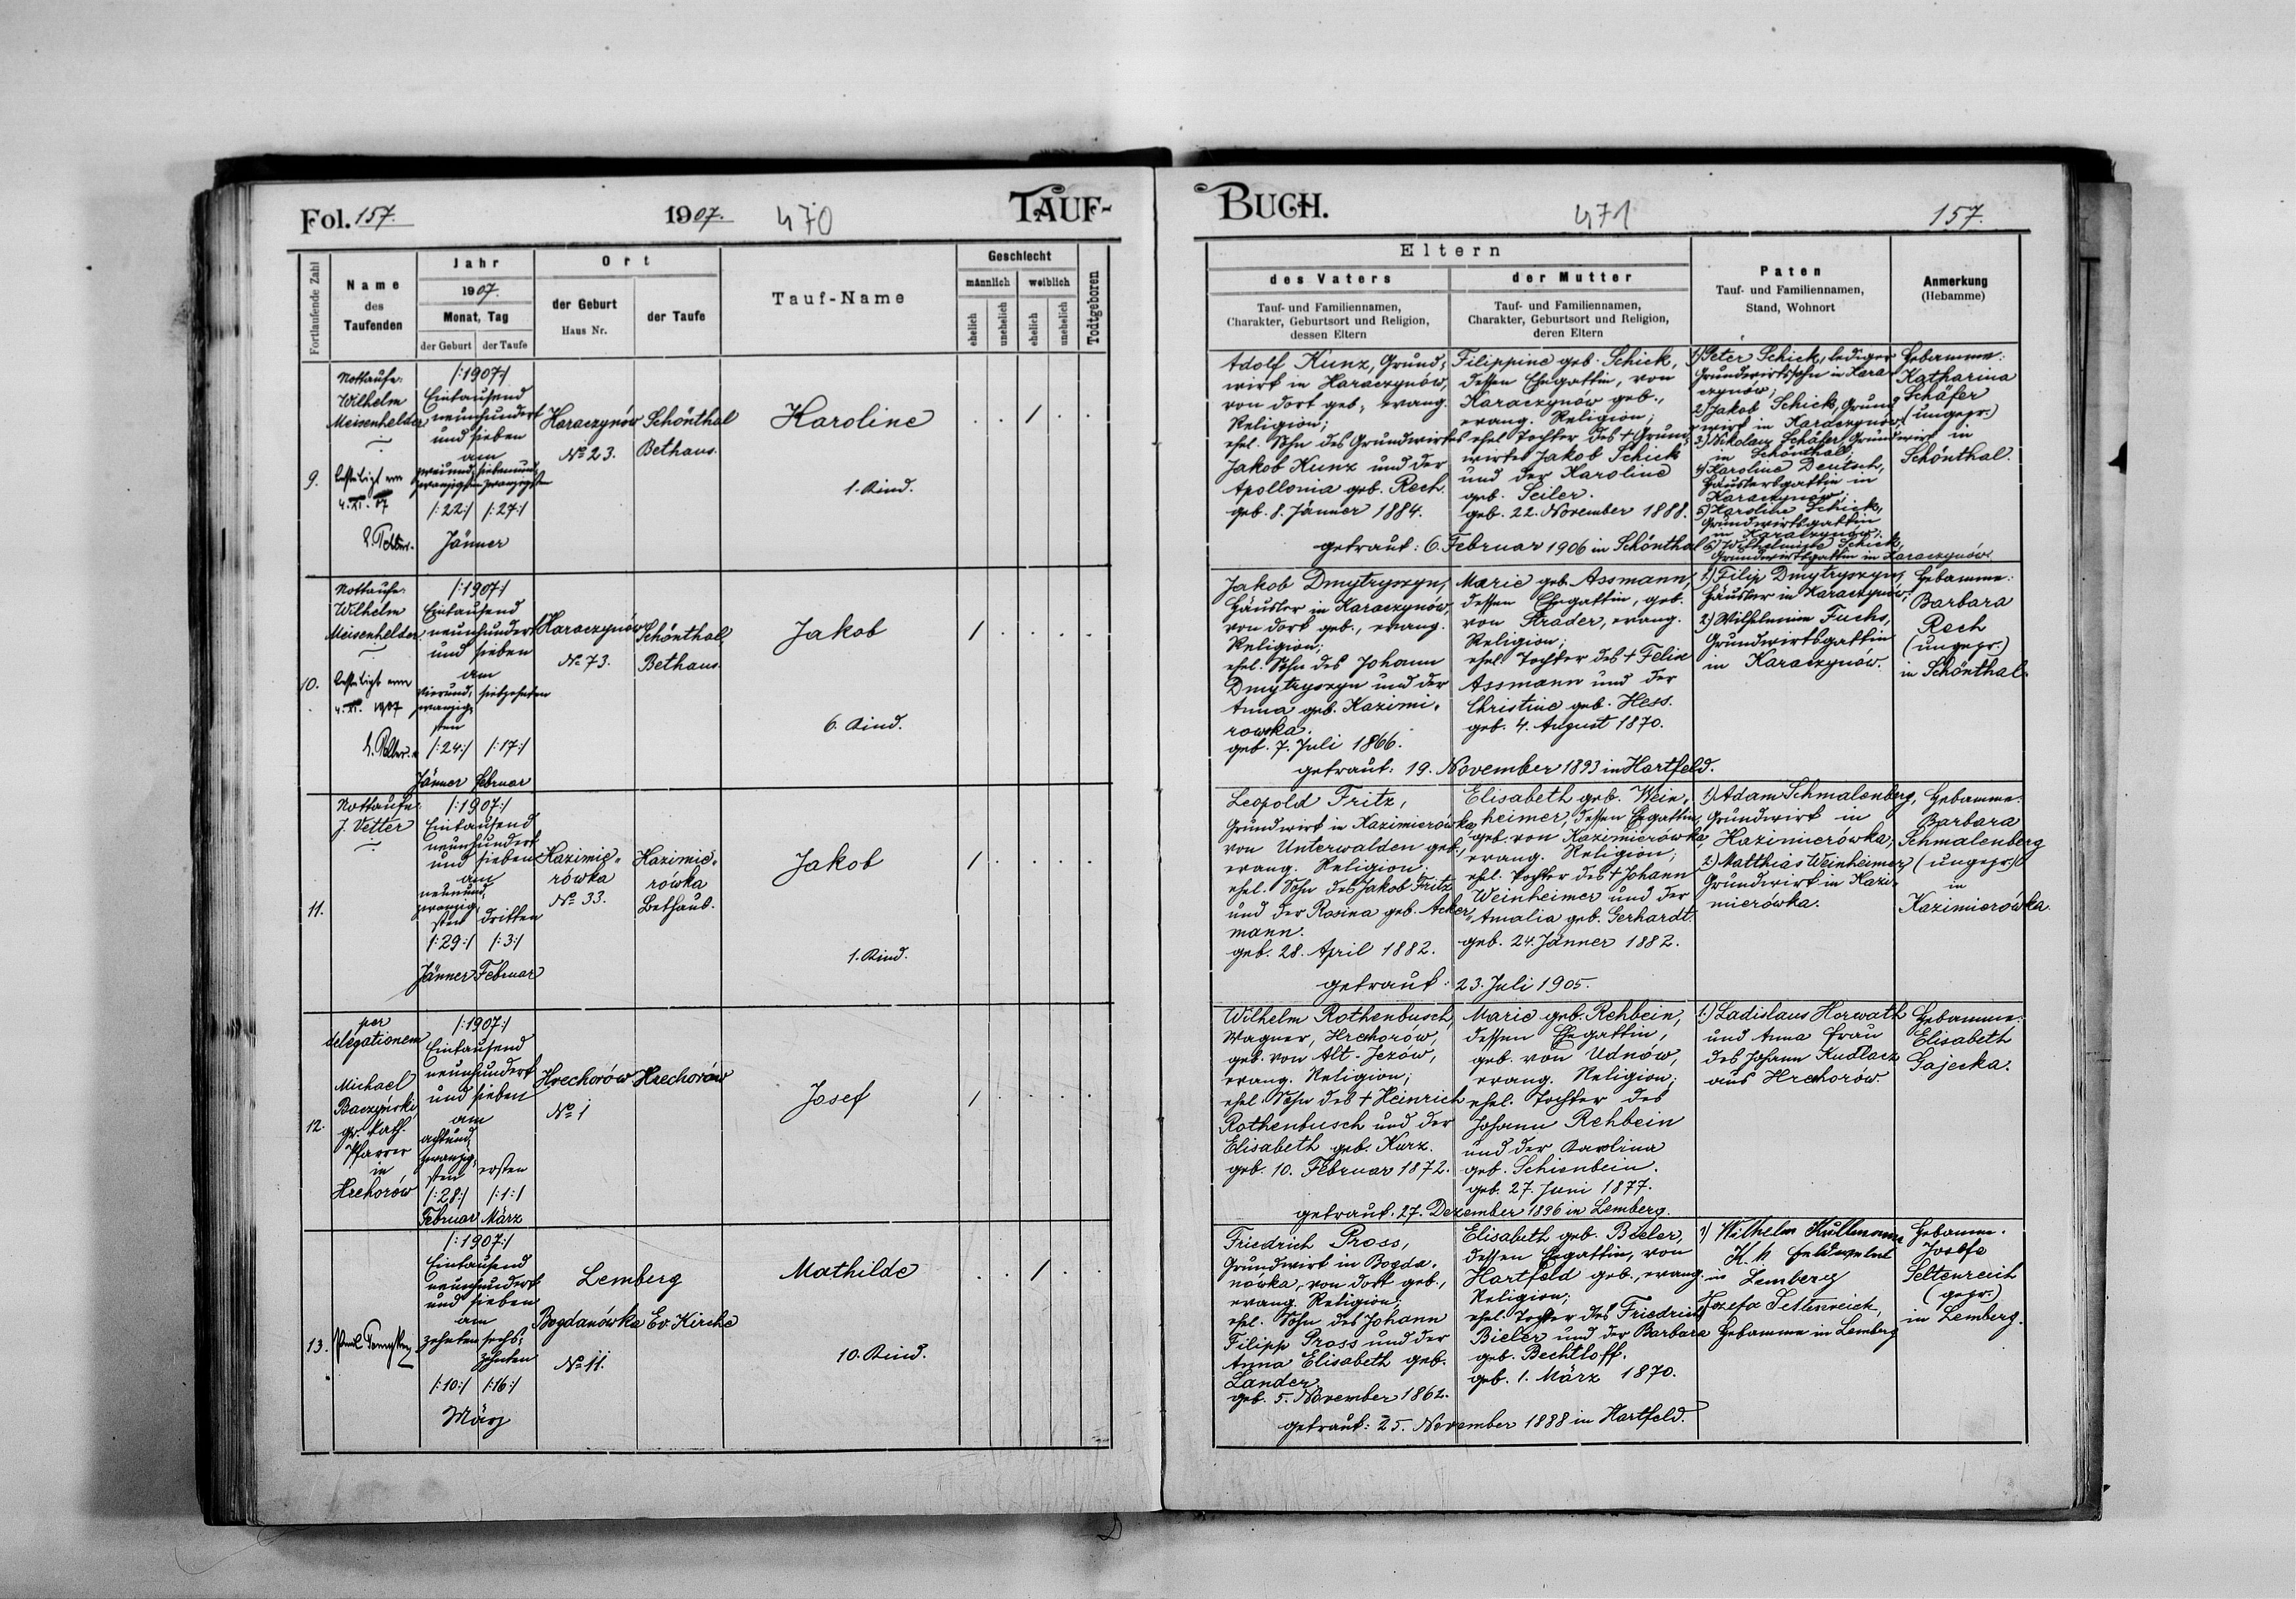 Fol. 157.
1907.
470
TAUF-
Fortlaufende Zahl
Name
des
Taufenden
Jahr
1907.
Monat, Tag
der Geburt
der Taufe
Ort
der Geburt
Haus Nr.
der Taufe
Tauf-Name
Geschlecht
männlich
weiblich
ehelich
unehelich
ehelich
unehelich
Todtgeboren
9.
Nottaufe:
Wilhelm
Meisenhelder
bestätigt vom
4. XI. 07
/:1907:/
Eintausend
neunhundert
und sieben
am
zweiund- siebenund-
zwanzigsten zwanzigsten
/:22:/ /:27:/
Jänner
Karaczynów
№ 23.
Schönthal
Bethaus.
Karoline
1. Kind.
. . / . .
10.
Nottaufe:
Wilhelm
Meisenhelder
bestätigt vom
4. XI. 1907
/:1907:/
Eintausend
neunhundert
und sieben
am
vierund- siebzehnten
zwanzig-
sten
/:24:/ /:17:/
Jänner Februar
Karaczynów
№ 73.
Schönthal,
Bethaus.
Jakob
6. Kind.
/ . . . .
11.
Nottaufe:
J. Vetter
/:1907:/
Eintausend
neunhundert
und sieben
am
neunund-
zwanzig-
sten dritten
/:29:/ /:3:/
Jänner Februar
Kazimie-
rówka
№ 33.
Kazimie-
rówka
Bethaus.
Jakob
1. Kind.
/ . . . .
12.
per
delegationem
Michael
Baczyński
gr. kath.
Pfarrer
in
Hrehorów
/:1907:/
Eintausend
neunhundert
und sieben
am
achtund-
zwanzig-
sten ersten
/:28:/ /:1:/
Februar März
Hrechorów
№ 1
Hrechorów
Josef
/ . . . .
13.
/:1907:/
Eintausend
neunhundert
und sieben
am
zehnten sechs-
zehnten
/:10:/ /:16:/
März
Lemberg
Bogdanówka Ev. Kirche
№ 11.
Mathilde
10. Kind.
. . / . .
BUCH.
471
157.
Eltern
des Vaters
Tauf- und Familiennamen,
Charakter, Geburtsort und Religion,
dessen Eltern
der Mutter
Tauf- und Familiennamen,
Charakter, Geburtsort und Religion,
deren Eltern
Paten
Tauf- und Familiennamen,
Stand, Wohnort
Anmerkung
(Hebamme)
Adolf Kunz, Grund-
wirt in Karaczynów,
von dort geb., evang.
Religion;
ehel. Sohn des Grundwirtes
Jakob Kunz und der
Apollonia geb. Rech.
geb. 8. Jänner 1884.
Filippine geb. Schick,
dessen Ehegattin, von
Karaczynów geb.,
evang. Religion;
ehel. Tochter des + Grund-
wirtes Jakob Schick
und der Karoline
geb. Seiler.
geb. 22. November 1888.
getraut: 6. Februar 1906 in Schönthal
1) Peter Schick, lediger
Grundwirtssohn in Kara-
czynów;
2) Jakob Schick, Grund-
wirt in Karaczynów;
3) Nikolaus Schäfer, Grundwirt
in Schönthal;
4) Karoline Deutsch,
Häuslersgattin in
Karaczynów;
5) Karoline Schick,
Grundwirtsgattin
in Karaczynów;
6) Wilhelmine Schick,
Grundwirtsgattin in Karaczynów.
Hebamme:
Katharina
Schäfer
(ungepr.)
in
Schönthal.
Jakob Dmytryszyn,
Häusler in Karaczynów,
von dort geb., evang.
Religion;
ehel. Sohn des Johann
Dmytryszyn und der
Anna geb. Kazimi-
rowska.
geb. 7. Juli 1866.
Marie geb. Assmann,
dessen Ehegattin, geb.
von Strader, evang.
Religion;
ehel. Tochter des + Felix
Assmann und der
Christine geb. Hess.
geb. 4. August 1870.
getraut: 19. November 1893 in Hartfeld.
1) Filip Dmytryszyn,
Häusler in Karaczynów;
2) Wilhelmine Fuchs,
Grundwirtsgattin
in Karaczynów.
Hebamme:
Barbara
Rech
(ungepr.)
in Schönthal.
Leopold Fritz,
Grundwirt in Kazimierówka,
von Unterwalden geb.,
evang. Religion;
ehel. Sohn des Jakob Fritz
und der Rosina geb. Acker-
mann.
geb. 28. April 1882.
Elisabeth geb. Wein-
heimer, dessen Ehegattin,
geb. von Kazimierówka,
evang. Religion;
ehel. Tochter des + Johann
Weinheimer und der
Amalia geb. Gerhardt.
geb. 24. Jänner 1882.
getraut: 23. Juli 1905.
1) Adam Schmalenberg,
Grundwirt in
Kazimierówka;
2) Matthias Weinheimer,
Grundwirt in Kazi-
mierówka.
Hebamme:
Barbara
Schmalenberg
(ungepr.)
in
Kazimierówka.
Wilhelm Rothenbusch,
Wagner, Hrehorów,
geb. von Alt-Jezów,
evang. Religion;
ehel. Sohn des + Heinrich
Rothenbusch und der
Elisabeth geb. Kurz.
geb. 10. Februar 1872.
Marie geb. Rehbein,
dessen Ehegattin,
geb. von Udnów,
evang. Religion;
ehel. Tochter des
Johann Rehbein
und der Karolina
geb. Schienbein.
geb. 27. Juni 1877.
getraut: 27. Dezember 1896 in Lemberg.
1) Ladislaus Horwath
und Anna Frau
des Johann Kudlacz
aus Hrehorów.
Hebamme:
Elisabeth
Gajecka.
Friedrich Pross,
Grundwirt in Bogda-
nówka, von dort geb.,
evang. Religion;
ehel. Sohn des Johann
Filipp Pross und der
Anna Elisabeth geb.
Lander.
geb. 5. November 1862.
Elisabeth geb. Bieler,
dessen Ehegattin, von
Hartfeld geb., evang.
Religion;
ehel. Tochter des Friedrich
Bieler und der Barbara
geb. Bechtloff.
geb. 1. März 1870.
getraut: 25. November 1888 in Hartfeld.
1) Wilhelm Kullmann
K. k. Feldwebel
in Lemberg
Josefa Seltenreich,
Hebamme in Lemberg
Hebamme.
Josefe
Seltenreich
(gepr.)
in Lemberg.